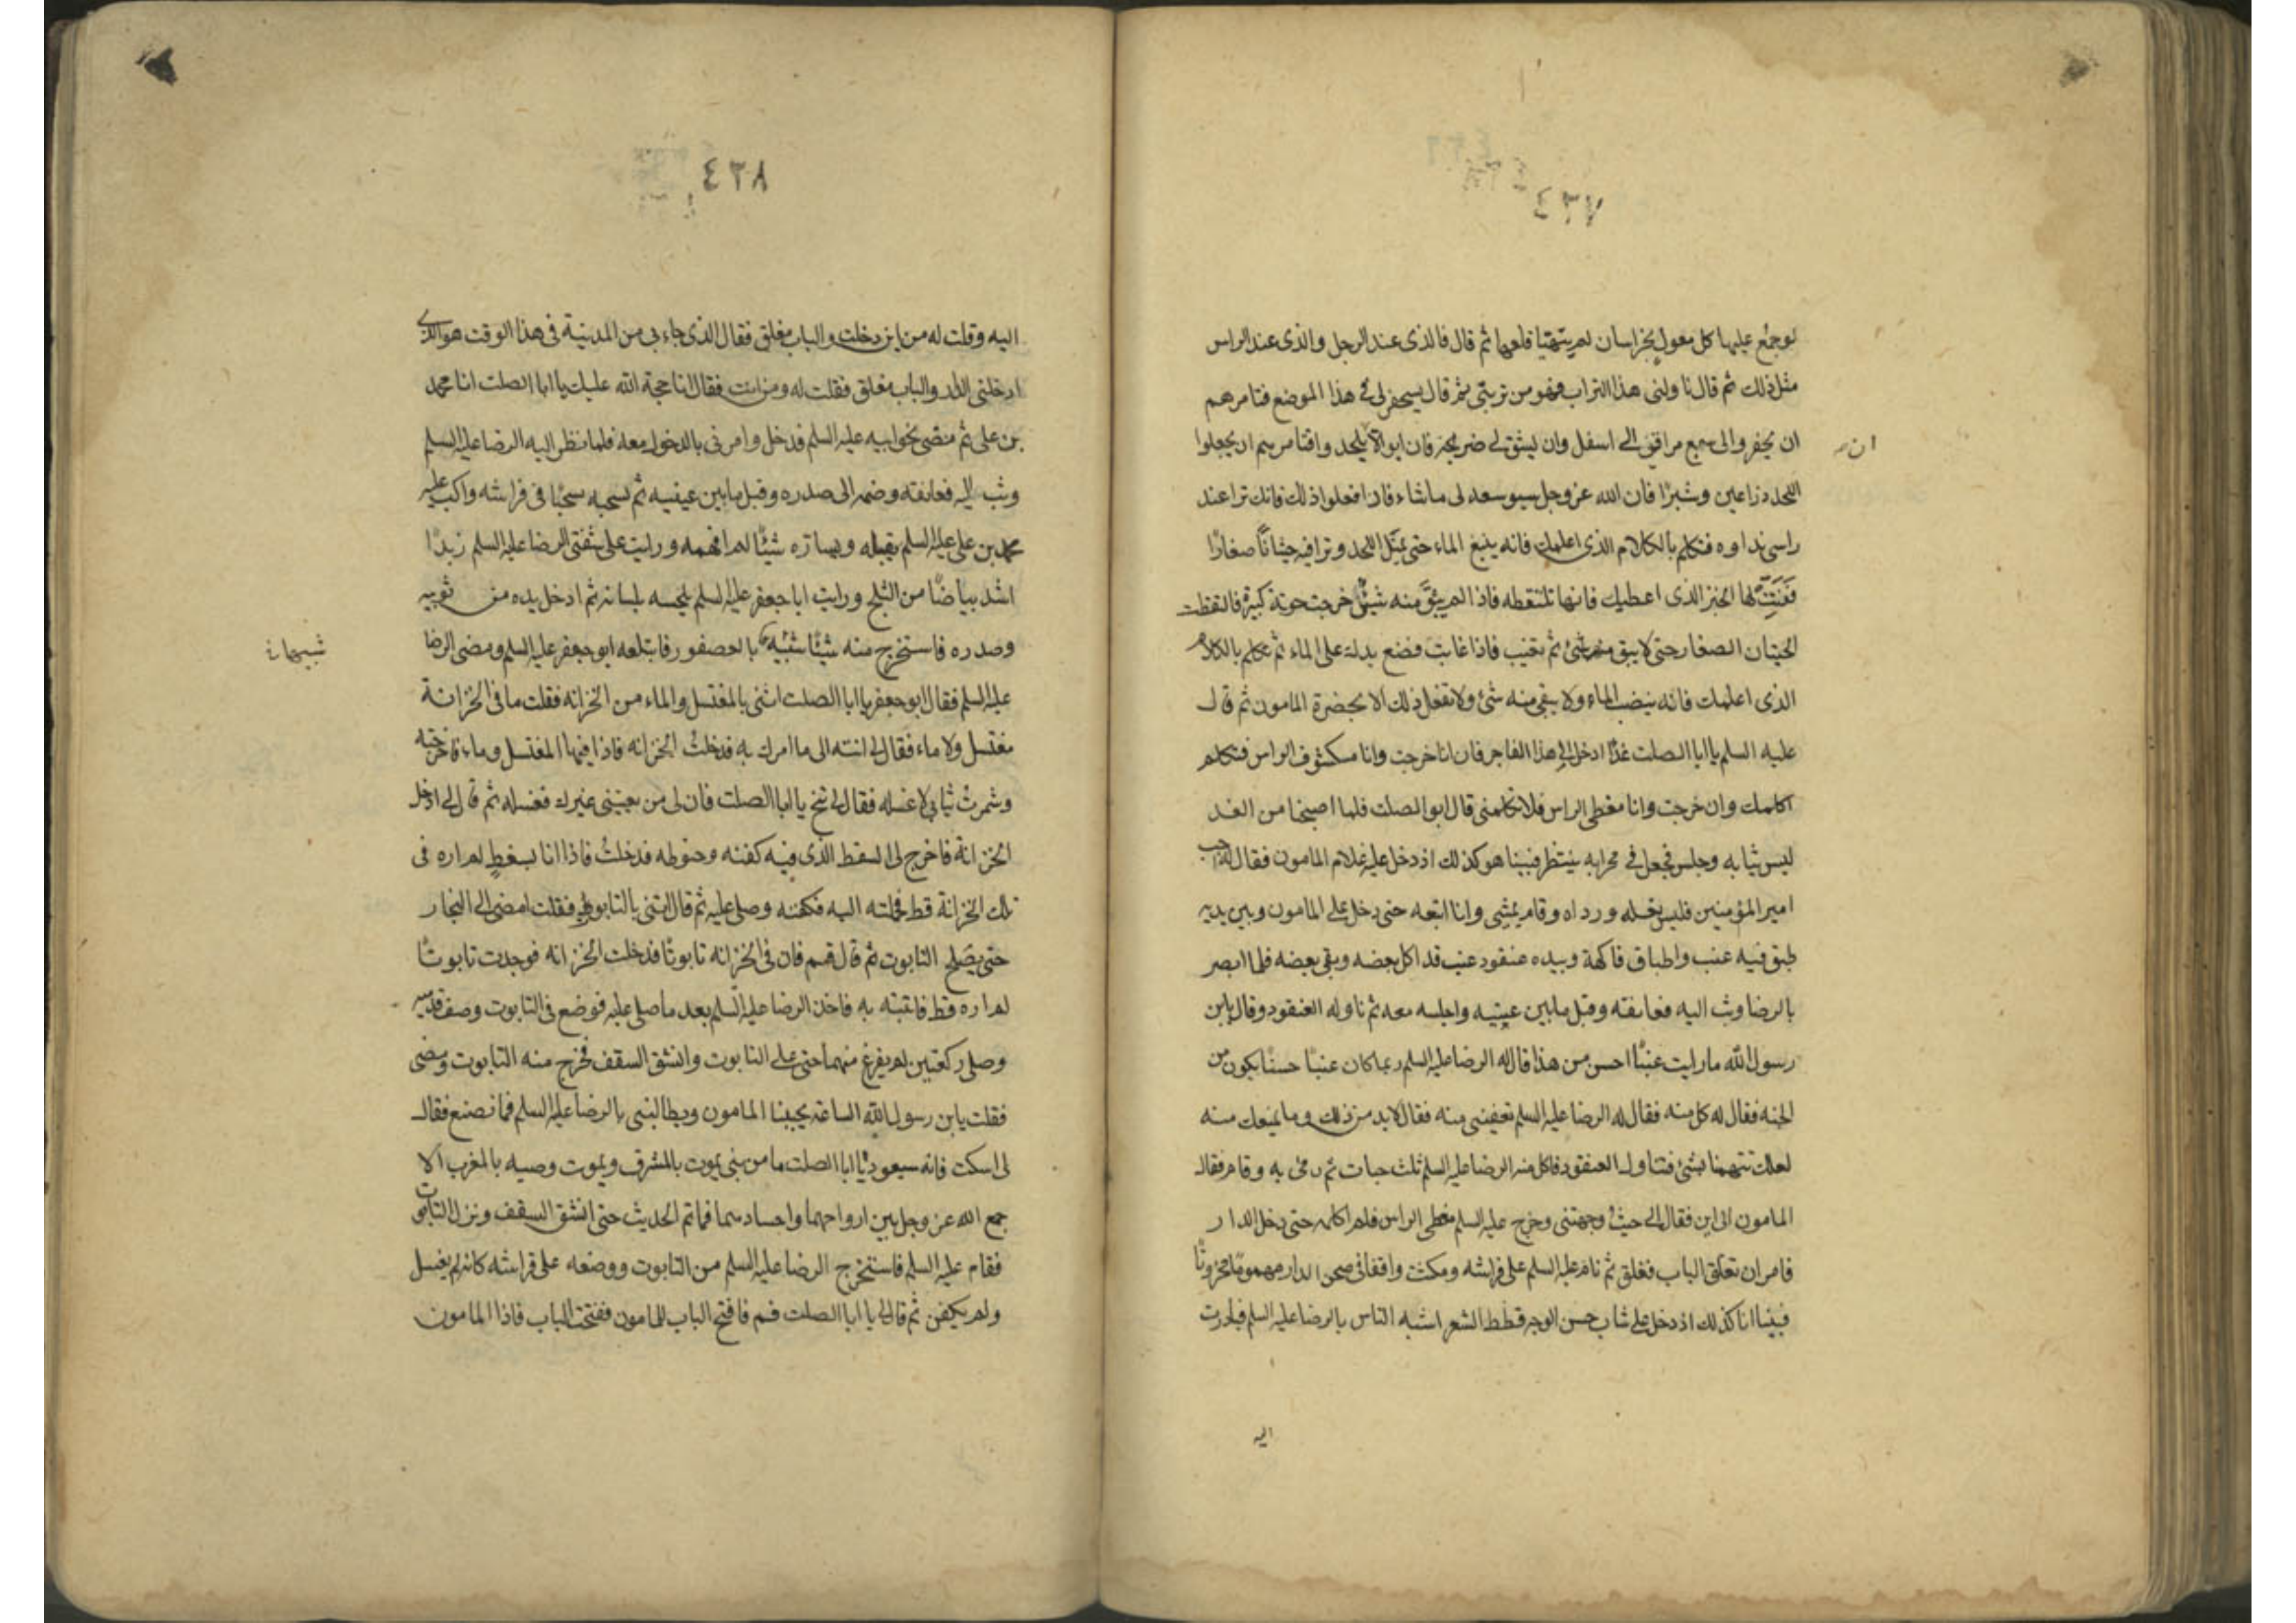 ٤٣٧
لوجمع عليها كل معول بخراسان لم يتهيا قلعها ثم قال فالذى عند الرجل والذى عند الراس
مثل ذلك ثم قال ناولنى هذا التراب فهو من تربتى ثم قال سيحفر لى فى هذا الموضع فتامرهم
ان يحفروا الى سبع مراقى الى اسفل وان يشق لى ضريحة فان ابوا الا يلحد وا فتامرهم ان يجعلوا
ان
اللحد ذراعين وشبرًا فان الله عز وجل سيوسعه لى ما شاء فاذا فعلوا ذلك فانك ترا عند
راسى نداوه فتكلم بالكلام الذى اعلمك فانه ينبع الماء حتى يمتلى اللحد وترا فيه حيتانًا صغارًا
ففتت لها الخبز الذى اعطيك فانها تلتقطه فاذا لم يبق منه شئ خرجت حوتة كبيرة فالتقطت
الحيتان الصغار حتى لا يبقى منها شئ ثم تغيب فاذا غابت فضع يدك على الماء ثم تكلم بالكلام
الذى اعلمك فانه ينضب الماء ولا يبقى منه شئ ولا تفعل ذلك الا بحضرة المامون ثم قال
عليه السلم يا ابا الصلت غدًا ادخل الى هذا الفاجر فان انا خرجت وانا مكشوف الراس فتكلم
اكلمك وان خرجت وانا مغطى الراس فلا تكلمنى قال ابو الصلت فلما اصبحنا من الغد
لبس ثيابه وجلس فجعل فى محرابه ينتظر فبينا هو كذلك اذ دخل عليه غلام المامون فقال له اجب
امير المؤمنين فلبس نعله ورداه وقام يمشى وانا اتبعه حتى دخل على المامون وبين يديه
طبق فيه عنب واطباق فاكهة وبيده عنقود عنب قد اكل بعضه وبقى بعضه فلما ابصر
بالرضا وثب اليه فعانقه وقبل ما بين عينيه واجلسه معه ثم ناوله العنقود وقال يابن
رسول الله ما رايت عنبًا احسن من هذا قال له الرضا عليه السلم ربما كان عنبًا حسنًا يكون من
الجنه فقال له كل منه فقال له الرضا عليه السلم تعفينى منه فقال لا بد من ذلك وما يمنعك منه
لعلك تتهمنا بشئ فتناول العنقود فاكل منه الرضا عليه السلم ثلث حبات ثم رمى به وقام فقال
المامون الى اين فقال الى حيث وجهتنى وخرج عليه السلم مغطى الراس فلم اكلمه حتى دخل الدار
فامر ان تغلق الباب فغلق ثم نام عليه السلم على فراشه ومكثت واقفا فى صحن الدار مهمومًا محزونًا
فبينا انا كذلك اذ دخل على شاب حسن الوجه قطط الشعر اشبه الناس بالرضا عليه السلم فبادرت
اليه
٤٣٨
اليه وقلت له من اين دخلت والباب مغلق فقال الذى جاء بى من المدينة فى هذا الوقت هو الذى
ادخلنى الدار والباب مغلق فقلت له ومن انت فقال انا حجة الله عليك يا ابا الصلت انا محمد
بن على ثم مضى نحو ابيه عليه السلم فدخل وامرنى بالدخول معه فلما نظر اليه الرضا عليه السلم
وثب اليه فعانقه وضمه الى صدره وقبل ما بين عينيه ثم سحبه سحبًا فى فراشه واكب عليه
محمد بن على عليه السلم يقبله ويساره شيئًا لم افهمه ورايت على شفتى الرضا عليه السلم زبدًا
اشد بياضًا من الثلج ورايت ابا جعفر عليه السلم يلحسه بلسانه ثم ادخل يده من ثوبيه
وصدره فاستخرج منه شيئًا شبيه بالعصفور فابتلعه ابو جعفر عليه السلم ومضى الرضا
شبيها
عليه السلم فقال ابو جعفر يا ابا الصلت ائتنى بالمغتسل والماء من الخزانه فقلت ما فى الخزانة
مغتسل ولا ماء فقال لى انته الى ما امرك به فدخلت الخزانه فاذا فيها المغتسل وماء فاخرجته
وشمرت ثيابى لاغسله فقال لى تنح يا ابا الصلت فان لى من يعيننى غيرك فغسله ثم قال لى ادخل
الخزانة فاخرج لى السفط الذى فيه كفنه وحنوطه فدخلت فاذا انا بسفط لم اره فى
تلك الخزانة قط فحملته اليه فكفنه وصلى عليه ثم قال ائتنى بالتابوت فقلت امضى الى النجار
حتى يصلح التابوت ثم قال قم فان فى الخزانه تابوتًا فدخلت الخزانه فوجدت تابوتًا
لم اره قط فاتيته به فاخذ الرضا عليه السلم بعد ما صلى عليه فوضع فى التابوت وصف قدميه
وصلى ركعتين لم يفرغ منهما حتى على التابوت وانشق السقف فخرج منه التابوت ومضى
فقلت يابن رسول الله الساعة يجيئنا المامون ويطالبنى بالرضا عليه السلم فما نصنع فقال
لى اسكت فانه سيعود يا ابا الصلت ما من نبى يموت بالمشرق ويموت وصيه بالمغرب الا
جمع الله عز وجل بين ارواحهما واجسادهما فما تم الحديث حتى انشق السقف ونزل التابوت
فقام عليه السلم فاستخرج الرضا عليه السلم من التابوت ووضعه على فراشه كانه لم يغسل
ولم يكفن ثم قال لى يا ابا الصلت قم فافتح الباب للمامون ففتحت الباب فاذا المامون